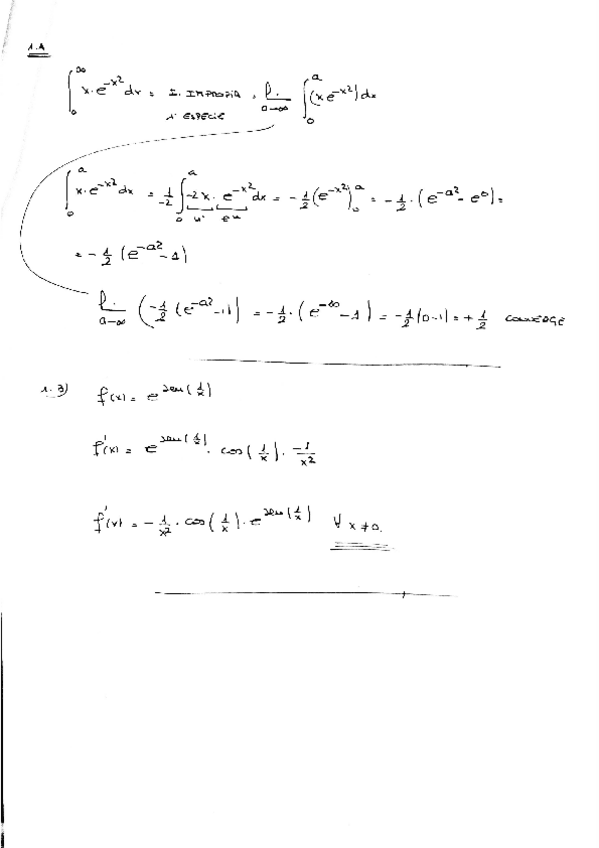 1.A
∫₀^∞ x·e^(-x²) dx = I. IMPROPIA = l. a→∞ ∫₀^a (x e^(-x²)) dx
1ª ESPECIE
∫₀^a x·e^(-x²) dx = 1/-2 ∫₀^a -2x · e^(-x²) dx = -1/2 (e^(-x²))₀^a = -1/2 · (e^(-a²) - e⁰) =
u' e^u
= -1/2 (e^(-a²) - 1)
l. a→∞ (-1/2 (e^(-a²) - 1)) = -1/2 · (e^(-∞) - 1) = -1/2 (0-1) = + 1/2 CONVERGE
1.3) f(x) = e^(sen(1/x))
f'(x) = e^(sen(1/x)) · cos(1/x) · -1/x²
f'(x) = -1/x² · cos(1/x) · e^(sen(1/x)) ∀ x ≠ 0.